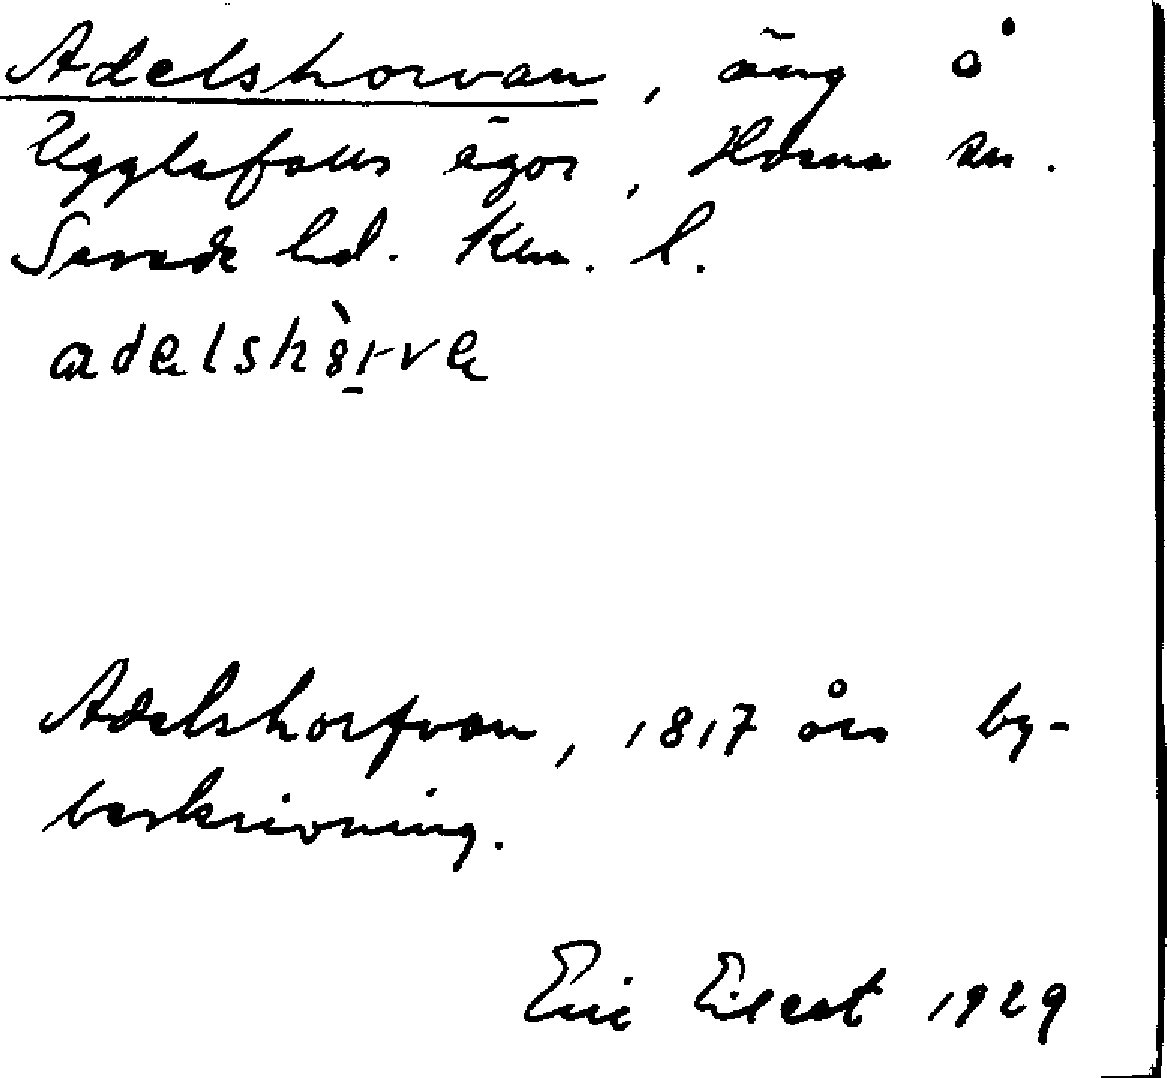 Adelshorvan, äng å
Ugglefalls ägor, Horns sn.
Sevede hd. Klm. l.
adelshòrve
Adelshorfvan, 1817 års by-
beskrivning.
Eric Elgert 1929